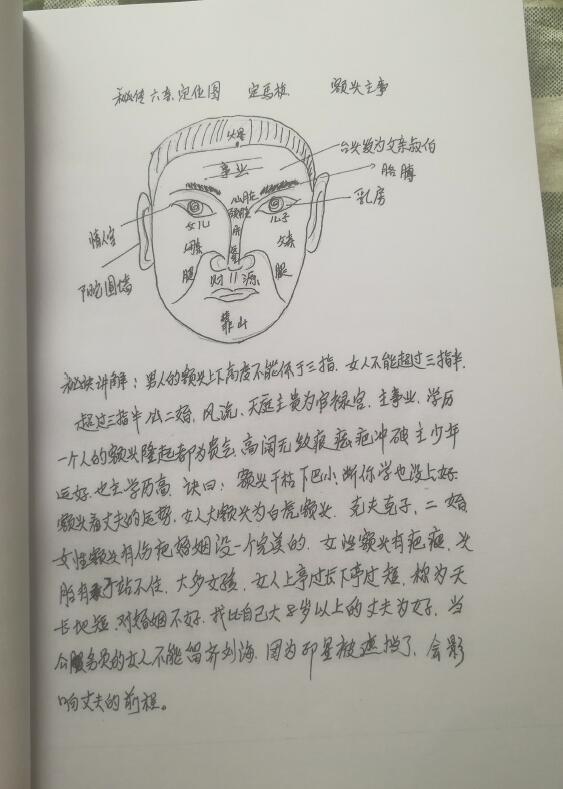 秘传六亲定位图 定马桩 额头主事
火星
事业
抬头纹为父亲叔伯
胳膊
心脏
乳房
女儿
儿子
情人宫
母亲
父亲
肝
腿
腿
财 源
阴宅围墙
靠山
秘诀讲解：男人的额头上下高度不能低于三指，女人不能超过三指半，
超过三指半必二婚，风流，天庭主贵为官禄宫，主事业，学历
一个人的额头隆起都为贵气，高阔无纹痕痣疤冲破主少年
运好，也主学历高，诀曰：额头干枯下巴小，断你学也没上好
额头看丈夫的运势，女人大额头为白虎额头，克夫克子，二婚
女性额头有伤疤婚姻没一个完美的，女性额头有疤痕，头
胎有孩子站不住，大多女孩，女人上亭过长下亭过短，称为天
长地短，对婚姻不好，找比自己大8岁以上的丈夫为好，当
公服务员的女人不能留齐刘海，因为印星被遮挡了，会影
响丈夫的前程。